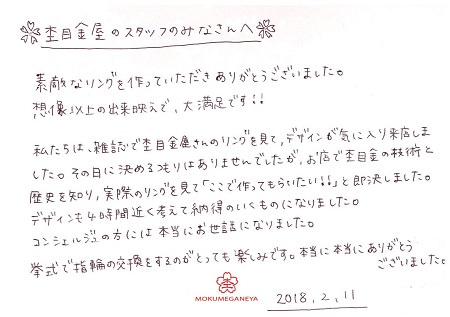 杢目金屋のスタッフのみなさんへ
素敵なリングを作っていただきありがとうございました。
想像以上の出来映えで、大満足です!!
私たちは、雑誌で杢目金屋さんのリングを見て、デザインが気に入り来店しま
した。その日に決めるつもりはありませんでしたが、お店で杢目金の技術と
歴史を知り、実際のリングを見て「ここで作ってもらいたい!!」と即決しました。
デザインも4時間近く考えて納得のいくものになりました。
コンシェルジュの方には本当にお世話になりました。
挙式で指輪の交換をするのがとっても楽しみです。本当に本当にありがとう
ございました。
MOKUMEGANEYA
2018.2.11